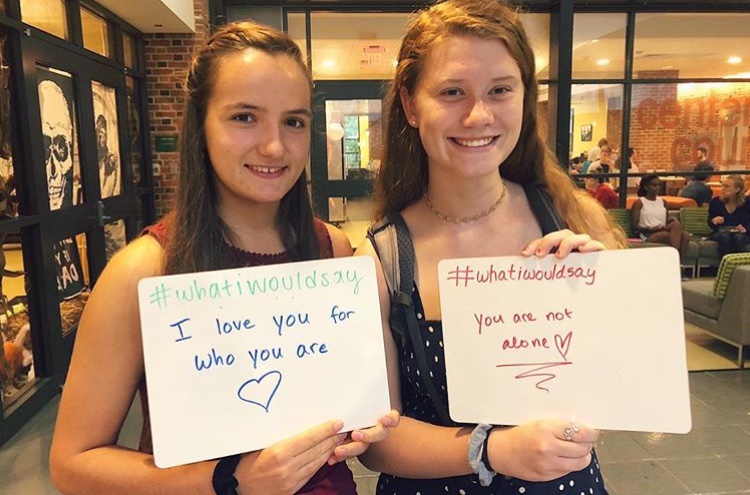 #whatiwouldsay
I love you for
who you are
#whatiwouldsay
you are not
alone
center
cou